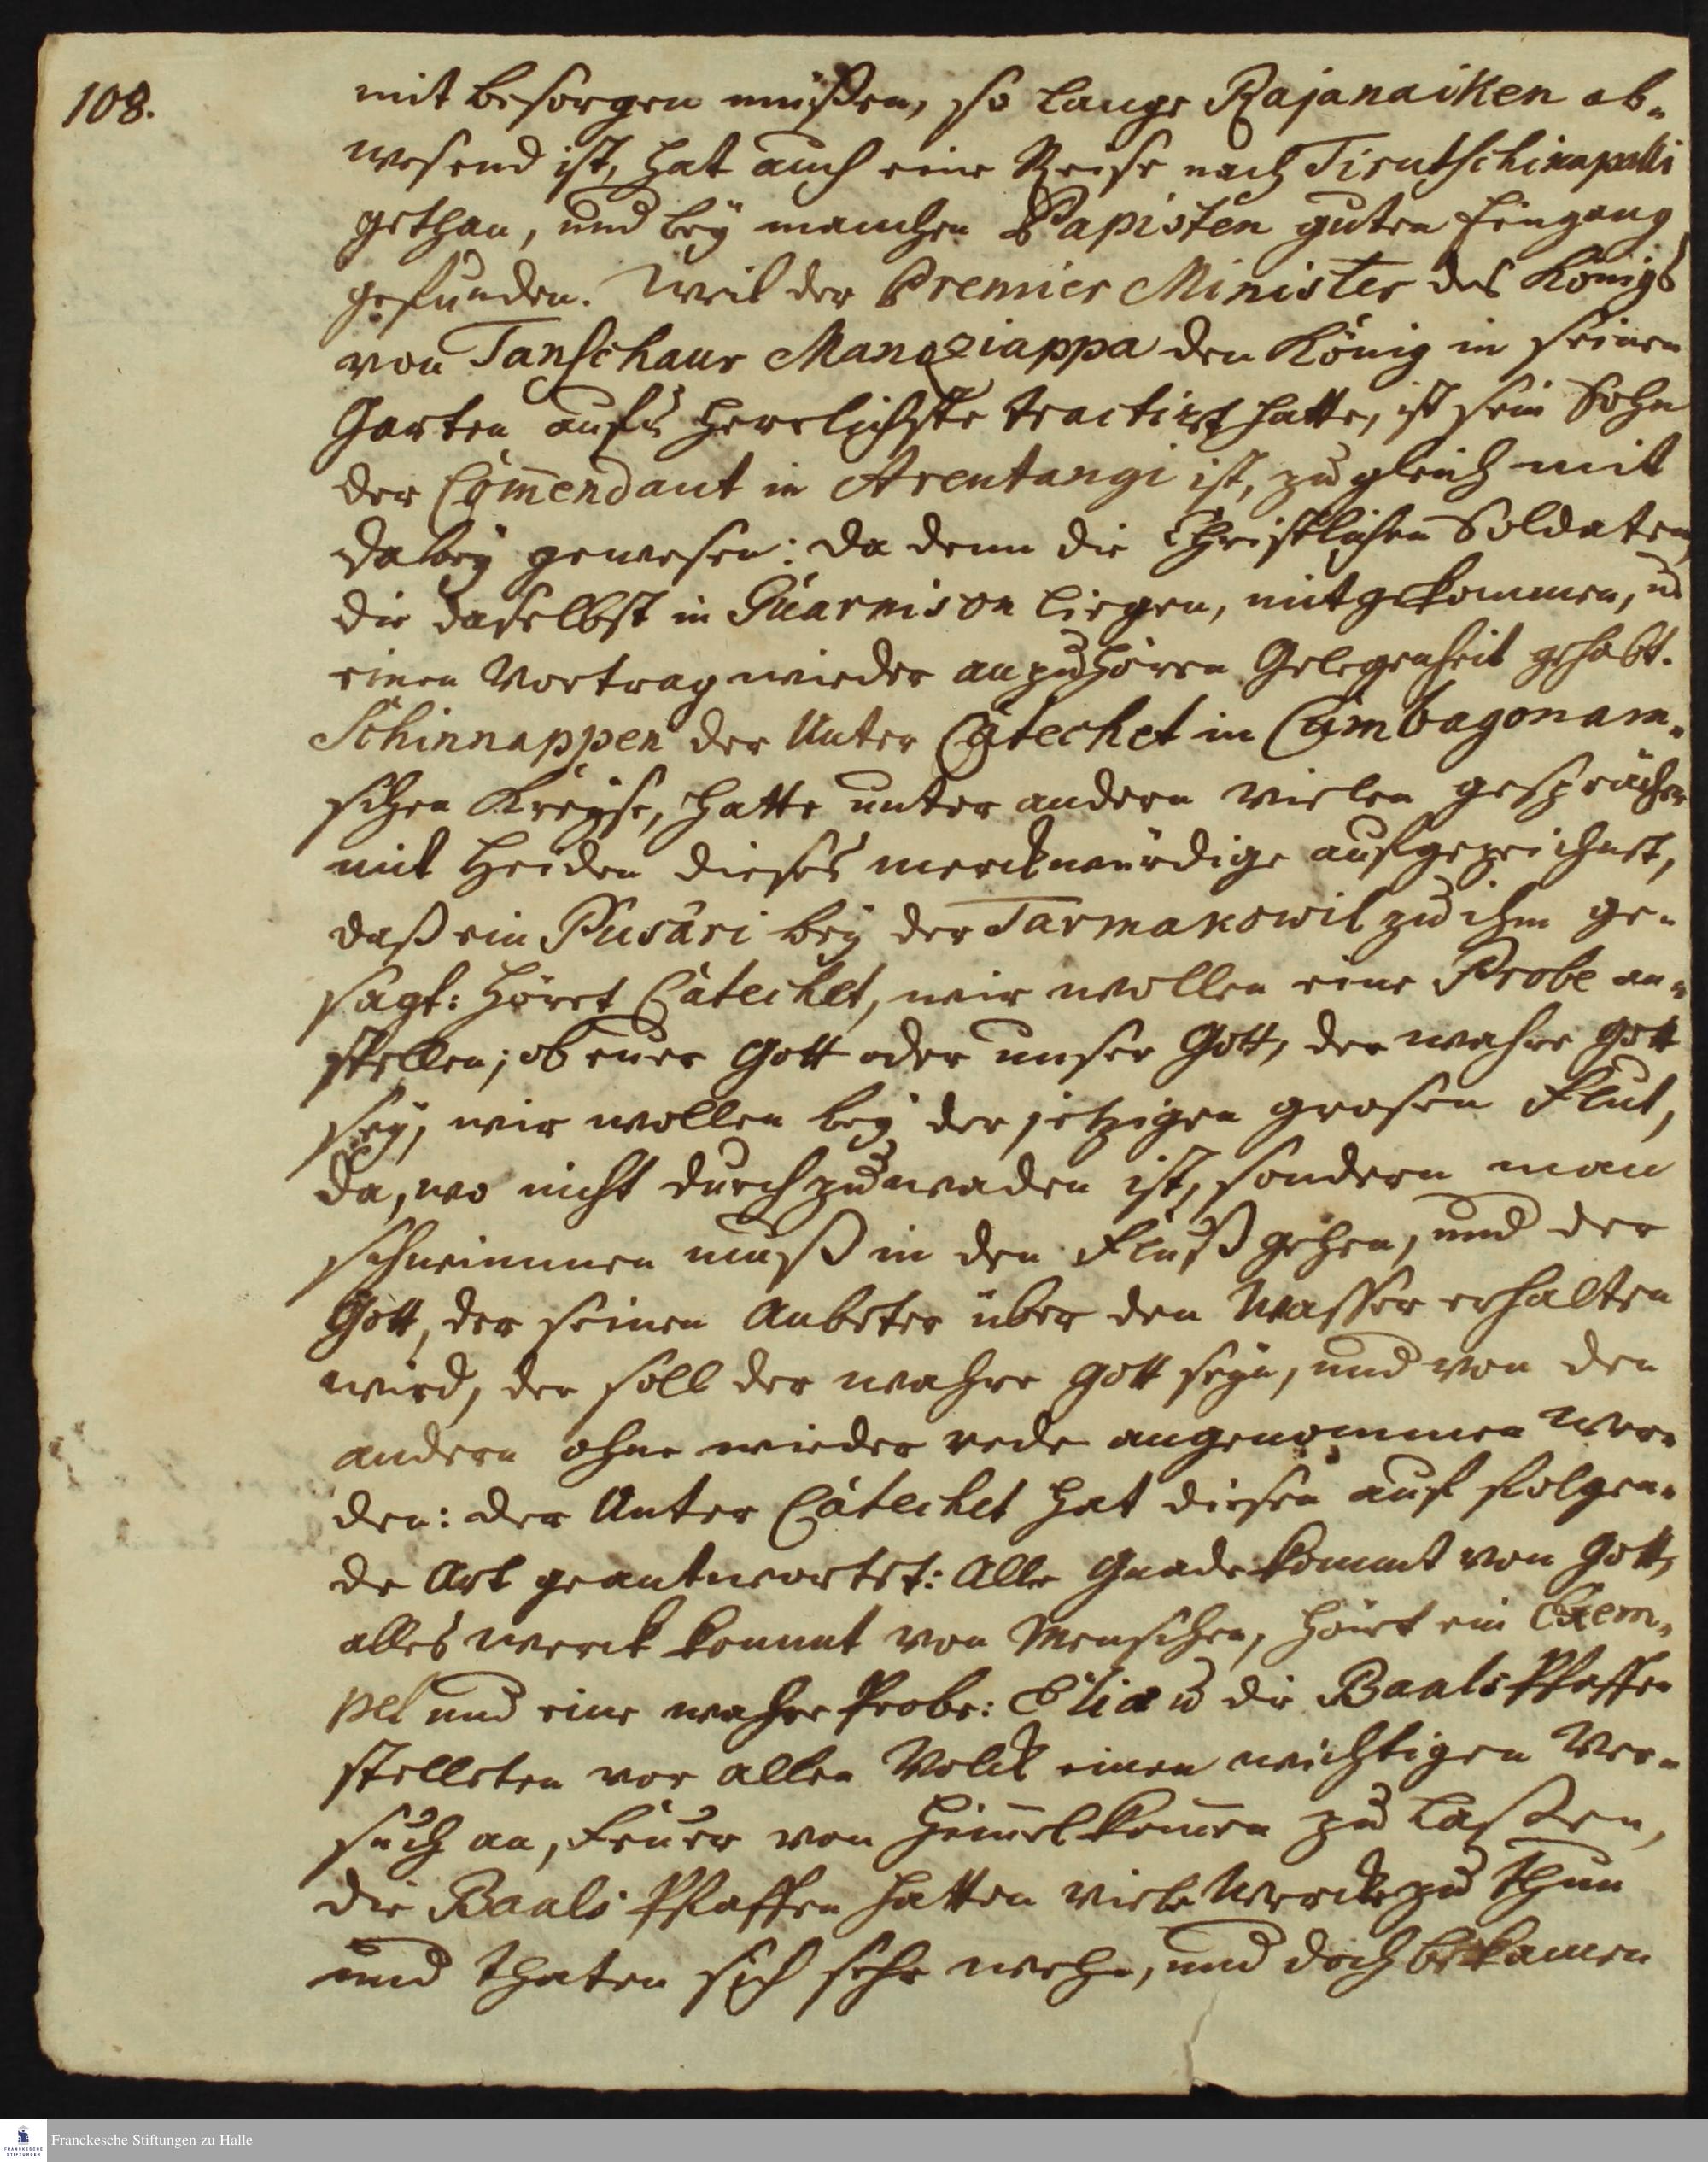 108.
mit besorgen müßen, so lange Rajanaiken ab-
wesend ist, hat auch eine Reise nach Tirutschinapalli
gethan, und bey manchen Papisten guten Eingang
gefunden. Weil der Premier Minister des Königs
von Tanschaur Manoziappa den König in seinen
Garten aufs herrlichste tractirt hatte, ist sein Sohn
der Com̄endant in Arentangi ist, zugleich mit
dabey gewesen: da denn die Christlichen Soldaten,
die daselbst in Guarnison liegen, mitgekommen, u
einen Vortrag wieder anzuhören Gelegenheit gehabt.
Schinnappen der Unter Catechet in Cumbagonam-
schen Kreyse, hatte unter andern vielen gesprächen
mit Heiden dieses merckwürdige aufgezeichnet,
daß ein Pusari bey der Tarmakowil zu ihm ge-
sagt: Höret Catechet, wir wollen eine Probe an-
stellen; ob euer Gott oder unser Gott, der wahre Gott
sey, wir wollen bey der jetzigen grosen Flut,
da, wo nicht durchzuwaden ist, sondern man
schwimmen muß in den Fluß gehen, und der
Gott, der seinen Anbeter über den Wasser erhalten
wird, der soll der wahre Gott seyn, und von den
andern ohne wieder rede angenommen wer-
den: der Unter Catechet hat diesen auf folgen-
de Art geantwortet: Alle Gnade kommt von Gott,
alles werck kommt von Menschen, höret ein Exem-
pel und eine wahre Probe: Elia u die Baals Pfaffen
stelleten vor allen Volck einen wichtigen Ver-
such an, Feuer von Him̄el kom̄en zu laßen,
die Baals Pfaffen hatten viele Wercke zu thun
und thaten sich sehr wehe, und doch bekamen
Franckesche Stiftungen zu Halle
FRANCKESCHE
STIFTUNGEN